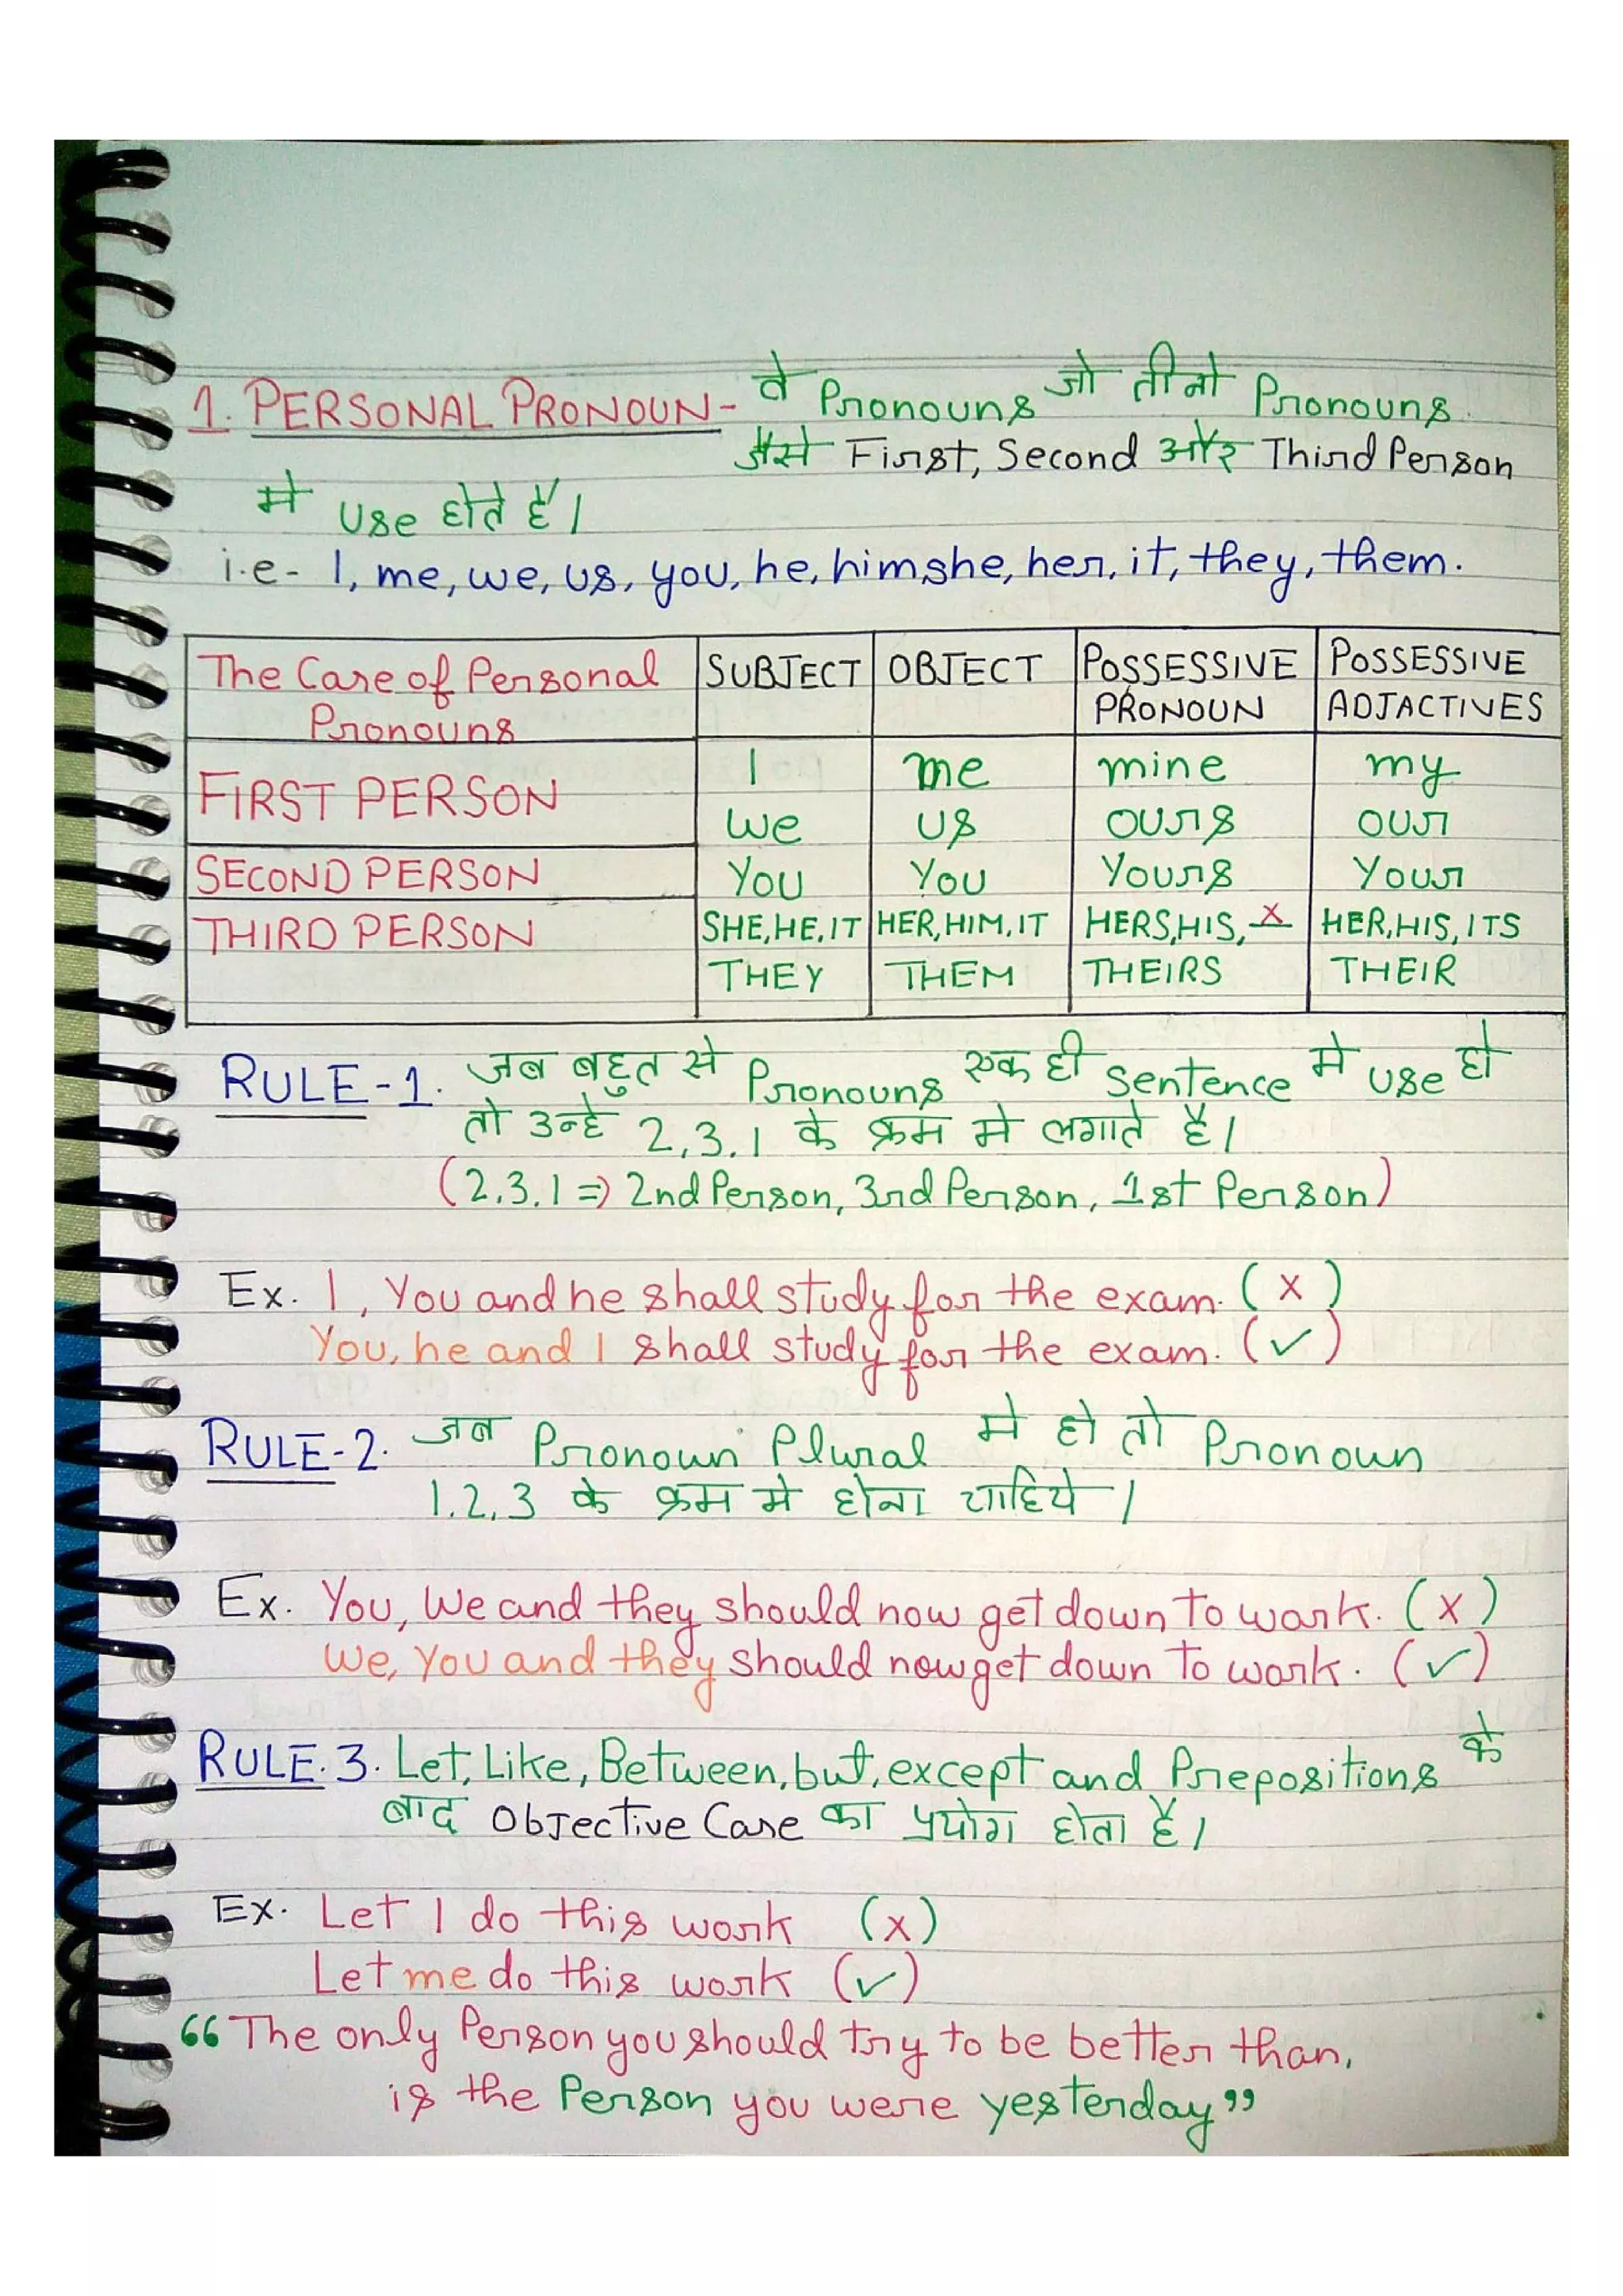 1. PERSONAL PRONOUN- वे Pronouns जो तीनो Pronouns
जैसे First, Second और Third Person
मे use होते हैं।
i.e- I, me, we, us, you, he, him, she, her, it, they, them.
The Case of Personal Pronouns SUBJECT OBJECT POSSESSIVE PRONOUN POSSESSIVE ADJACTIVES
FIRST PERSON I me mine my
we us ours our
SECOND PERSON You You Yours Your
THIRD PERSON SHE, HE, IT HER, HIM, IT HERS, HIS, X HER, HIS, ITS
THEY THEM THEIRS THEIR
RULE-1. जब बहुत से Pronouns एक ही sentence मे use हो
तो उन्हे 2,3,1 के क्रम मे लगाते है।
(2,3,1 => 2nd Person, 3rd Person, 1st Person)
Ex. I, You and he shall study for the exam. (x)
You, he and I shall study for the exam. (✓)
RULE-2. जब Pronoun Plural मे हो तो Pronoun
1,2,3 के क्रम मे होना चाहिये।
Ex. You, We and they should now get down To work. (x)
We, You and they should now get down To work. (✓)
RULE.3. Let, Like, Between, but, except and Prepositions के
बाद Objective Case का प्रयोग होता है।
Ex. Let I do this work (x)
Let me do this work (✓)
“The only Person you should try to be better than,
is the Person you were yesterday”